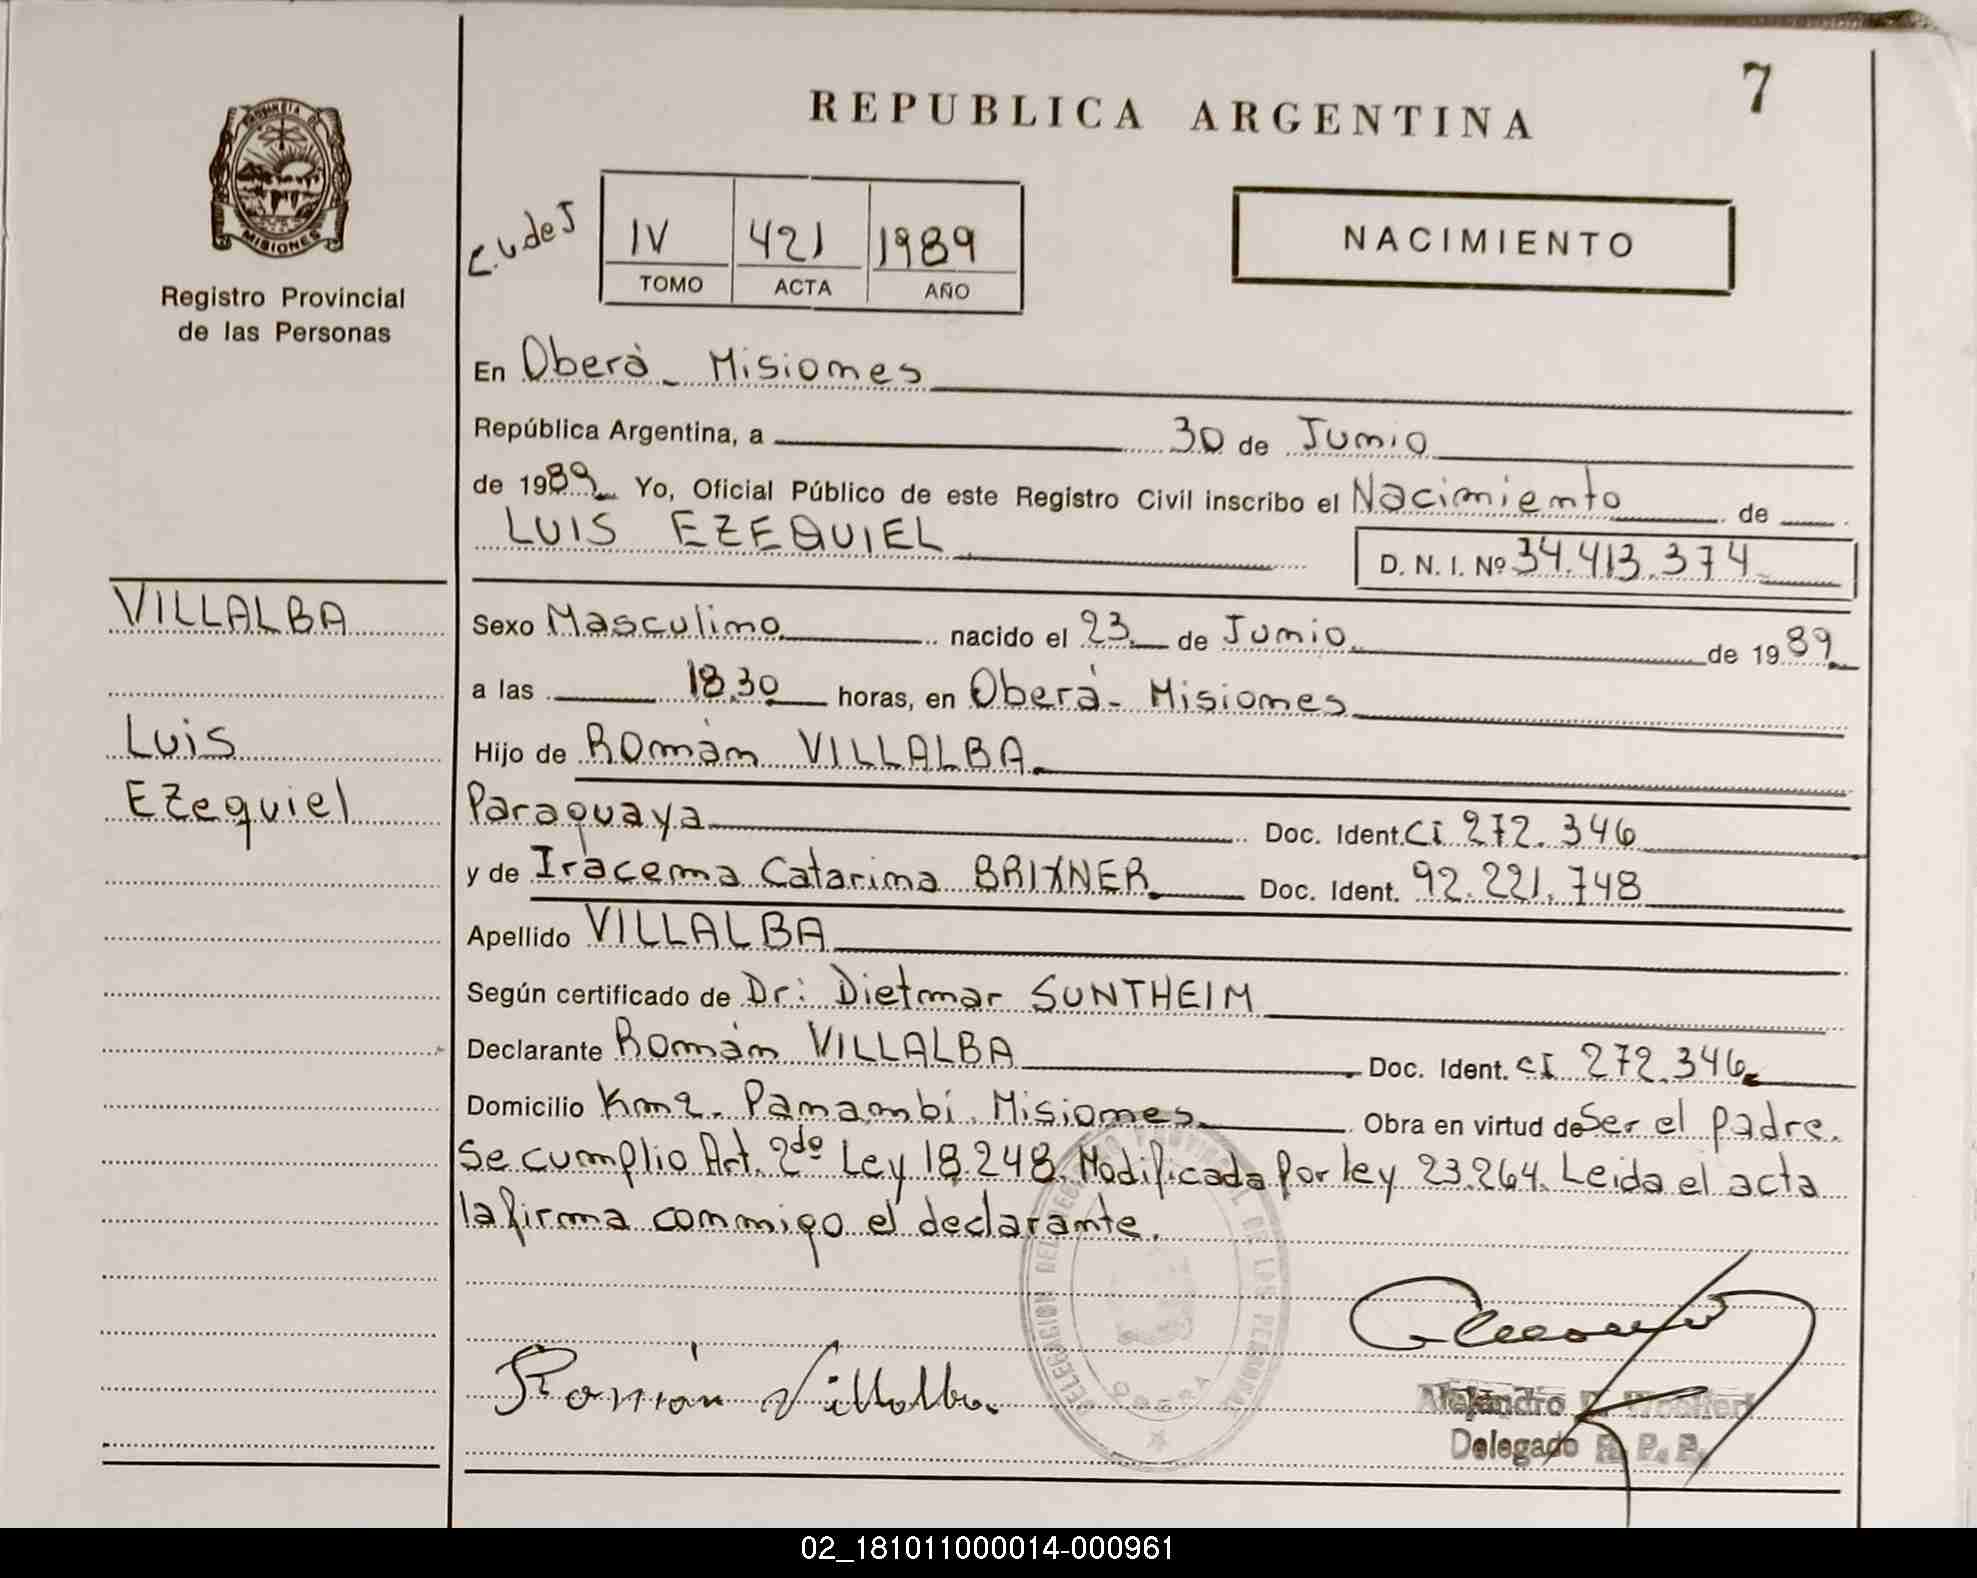 REPUBLICA ARGENTINA
7
PROVINCIA DE
MISIONES
Registro Provincial
de las Personas
C.U de J
IV 421 1989
TOMO ACTA AÑO
NACIMIENTO
En Oberá - Misiones
República Argentina, a 30 de Junio
de 1989 Yo, Oficial Público de este Registro Civil inscribo el Nacimiento de
LUIS EZEQUIEL
D. N. I. Nº 34.413.374
VILLALBA
Luis
Ezequiel
Sexo Masculino nacido el 23 de Junio de 1989
a las 18.30 horas, en Oberá - Misiones
Hijo de Román VILLALBA
Paraguaya Doc. Ident. CI 272.346
y de Iracema Catarina BRIXNER Doc. Ident. 92.221.748
Apellido VILLALBA
Según certificado de Dr: Dietmar SUNTHEIM
Declarante Román VILLALBA Doc. Ident. CI 272.346
Domicilio Km 2. Panambí. Misiones Obra en virtud de Ser el padre.
Se cumplio Art. 2do Ley 18.248. Modificada por ley 23.264. Leida el acta
la firma conmigo el declarante.
DELEGACION DEL REGISTRO PROVINCIAL DE LAS PERSONAS
OBERA
Román Villalba.
Alejandro
Delegado R. P. P.
02_181011000014-000961